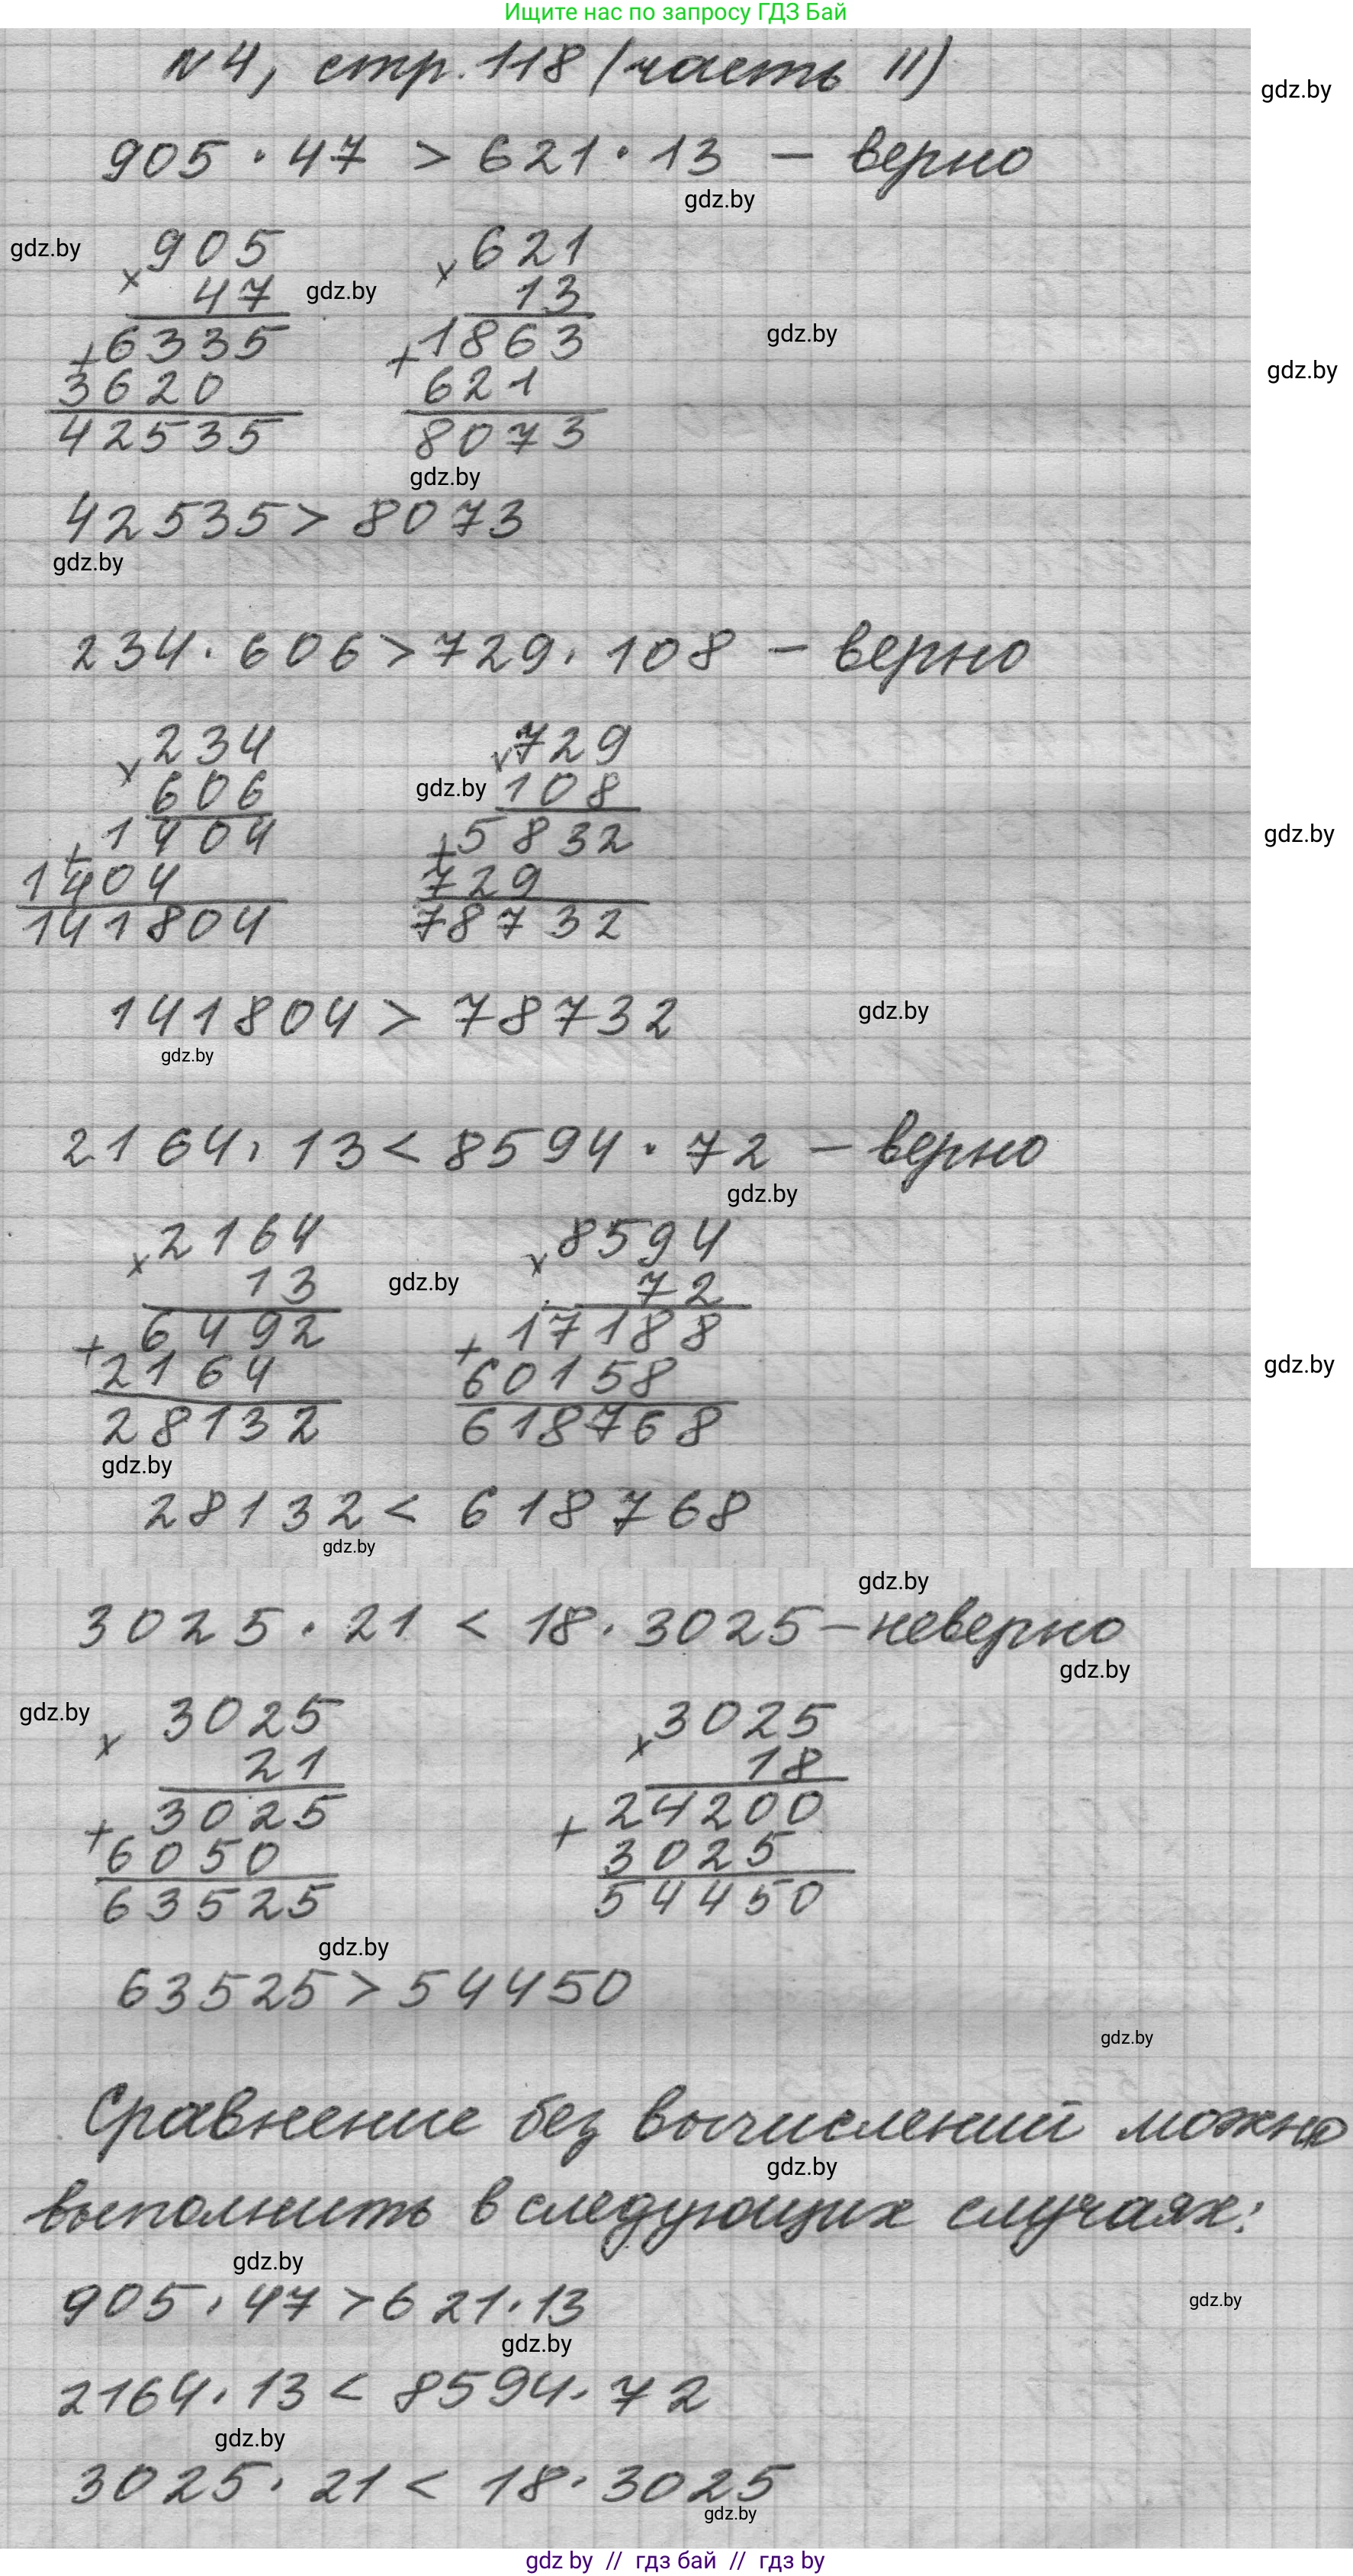 Ищите нас по запросу ГДЗ Бай
N4, стр. 118 (часть II)
gdz.by
905 · 47 > 621 · 13 — верно
gdz.by
gdz.by
905 621
× ×
47 gdz.by 13
gdz.by
+6335 +1863
gdz.by
3620 621
42535 8073
gdz.by
42535 > 8073
gdz.by
234 · 606 > 729 · 108 — верно
×234 ×729
606 gdz.by 108
gdz.by
+1404 +5832
1404 729
141804 78732
141804 > 78732 gdz.by
gdz.by
2164 · 13 < 8594 · 72 — верно
gdz.by
×2164 ×8594
13 gdz.by 72
+6492 +17188
gdz.by
2164 60158
28132 618768
gdz.by
28132 < 618768
gdz.by
gdz.by
3025 · 21 < 18 · 3025 — неверно
gdz.by
gdz.by
×3025 ×3025
21 18
+3025 +24200
6050 3025
63525 54450
gdz.by
63525 > 54450
gdz.by
Сравнение без вычислений можно
gdz.by
выполнить в следующих случаях:
gdz.by
905 · 47 > 621 · 13
gdz.by
gdz.by
2164 · 13 < 8594 · 72
gdz.by
3025 · 21 < 18 · 3025
gdz.by
gdz by // гдз бай // гдз by